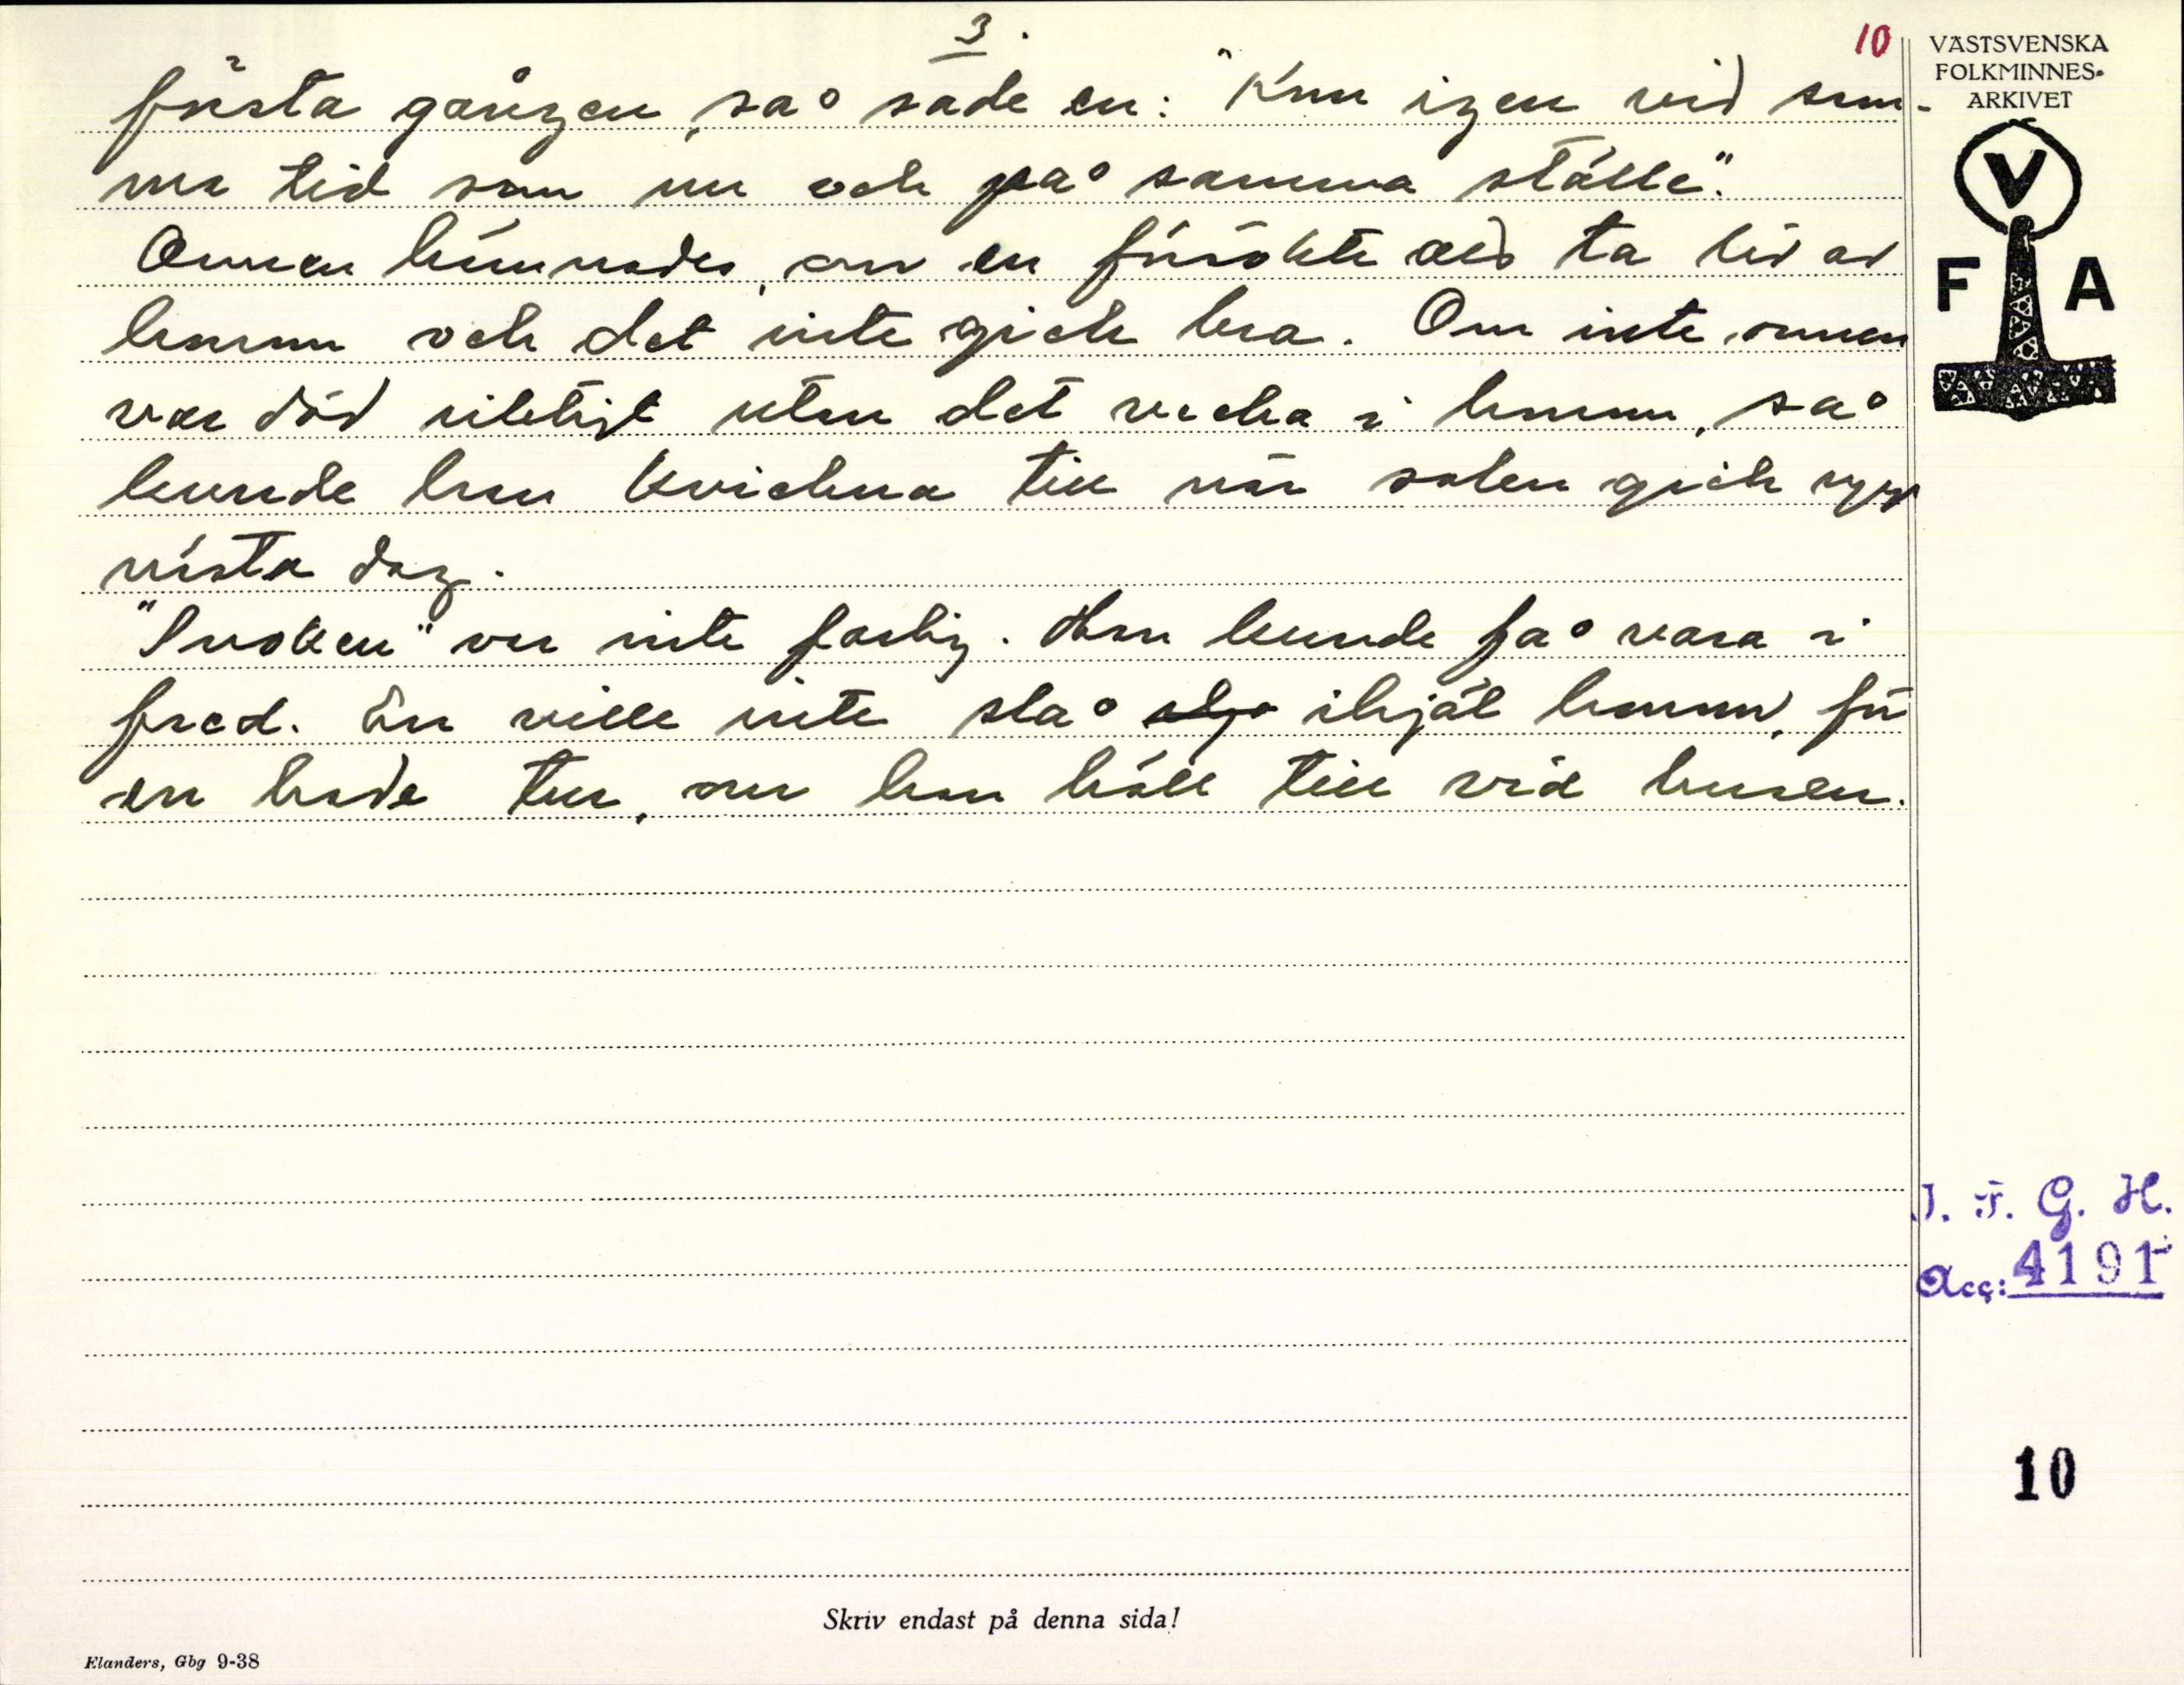 3.
10
första gången, så sade en: "Kom igen vid sam-
ma tid som nu och på samma ställe."
Ormen hämnades, om en försökte att ta liv av
honom och det inte gick bra. Om inte ormen
var död riktigt utan det vecka i honom, så
kunde han kvickna till när solen gick upp
nästa dag.
"Snoken" var inte farlig. Han kunde få vara i
fred. En ville inte slå ihjäl honom, för
en hade tur, om han höll till vid husen.
VÄSTSVENSKA
FOLKMINNES-
ARKIVET
V
F A
I. F. G. H.
Acc: 4191
10
Skriv endast på denna sida!
Elanders, Gbg 9-38